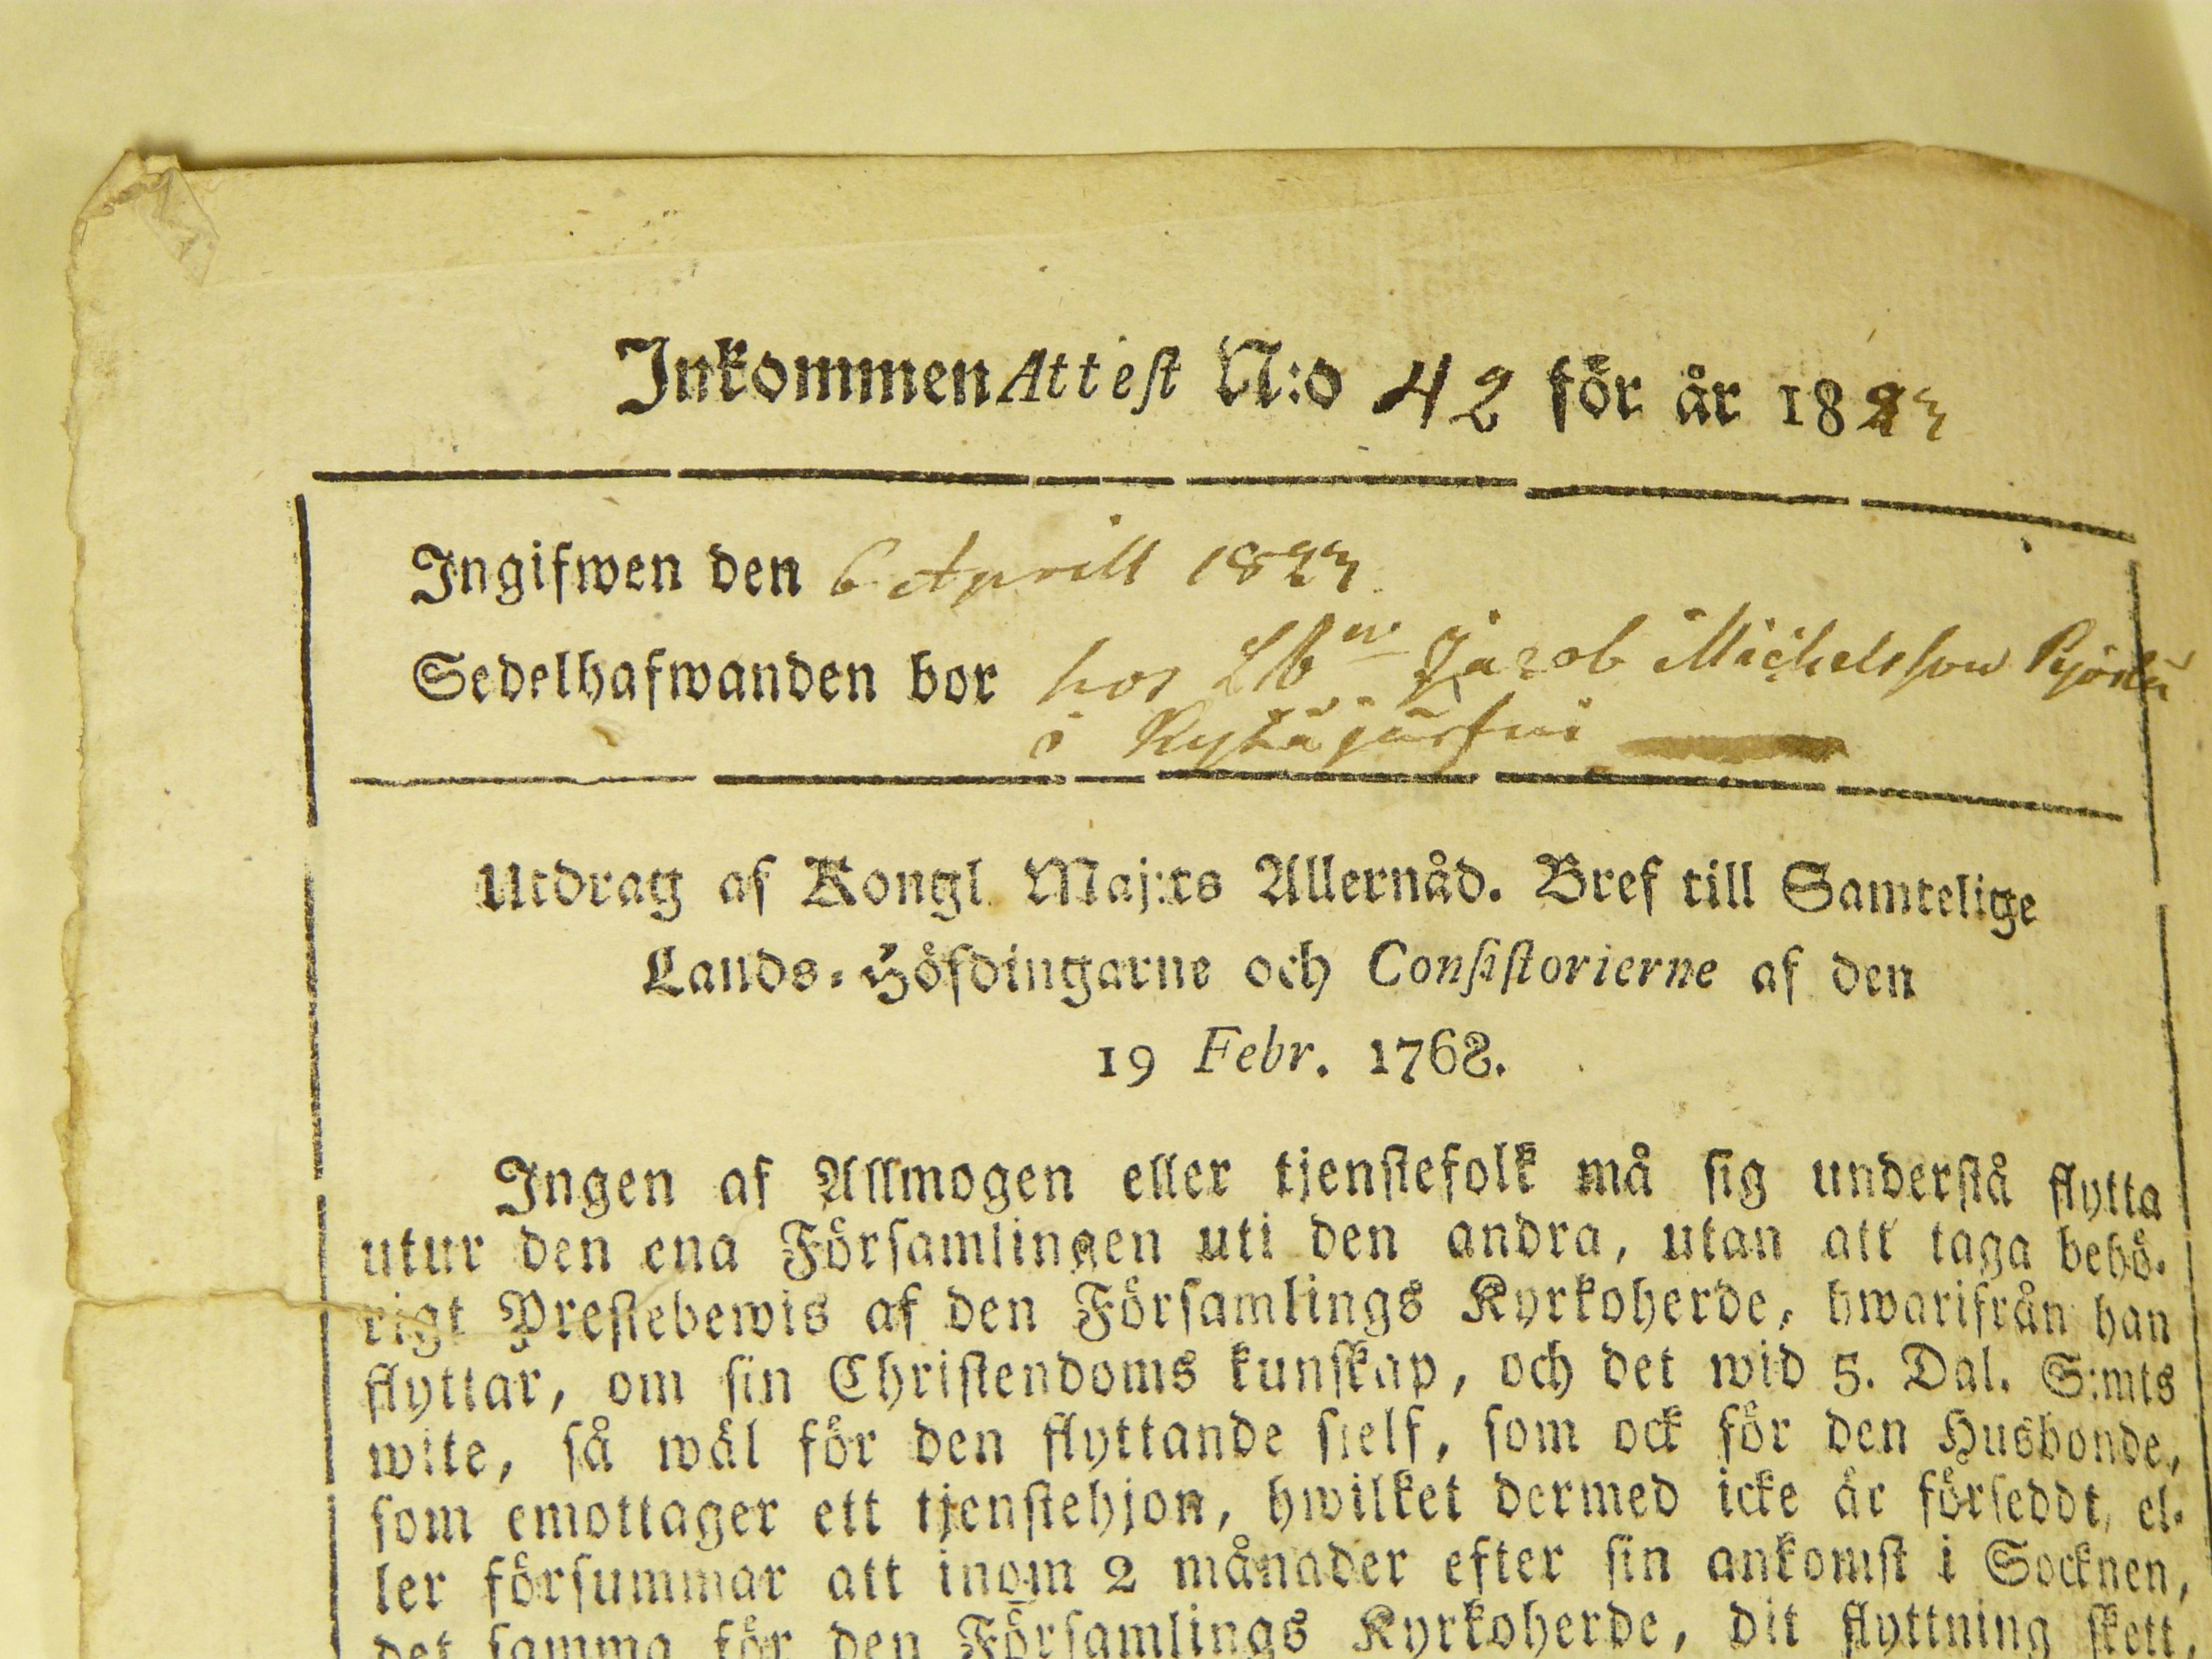 Inkommen Attest N:o 42 för år 1823
Ingifwen den 6 Aprill 1823
Sedelhafwanden bor hos Lbn Jacob Michelsson
i Kyläjärfui
Utdrag af Kongl Maj:ts Allernåd. Bref till Samtelige
Lands-Höfdingarne och Consistorierne af den
19 Febr. 1768.
Ingen af Allmogen eller tjenstefolk må sig understå flytta
utur den ena Församlingen uti den andra, utan att taga behö-
rigt Prestebewis af den Församlings Kyrkoherde, hwarifrån han
flyttar, om sin Christendoms kunskap, och det wid 5. Dal. S:mts
wite, så wäl för den flyttande sjelf, som ock för den Husbonde,
som emottager ett tjenstehjon, hwilket dermed icke är förseddt, el-
ler försummar att inom 2 månader efter sin ankomst i Socknen,
det samma för den Församlings Kyrkoherde, dit flyttning skett,